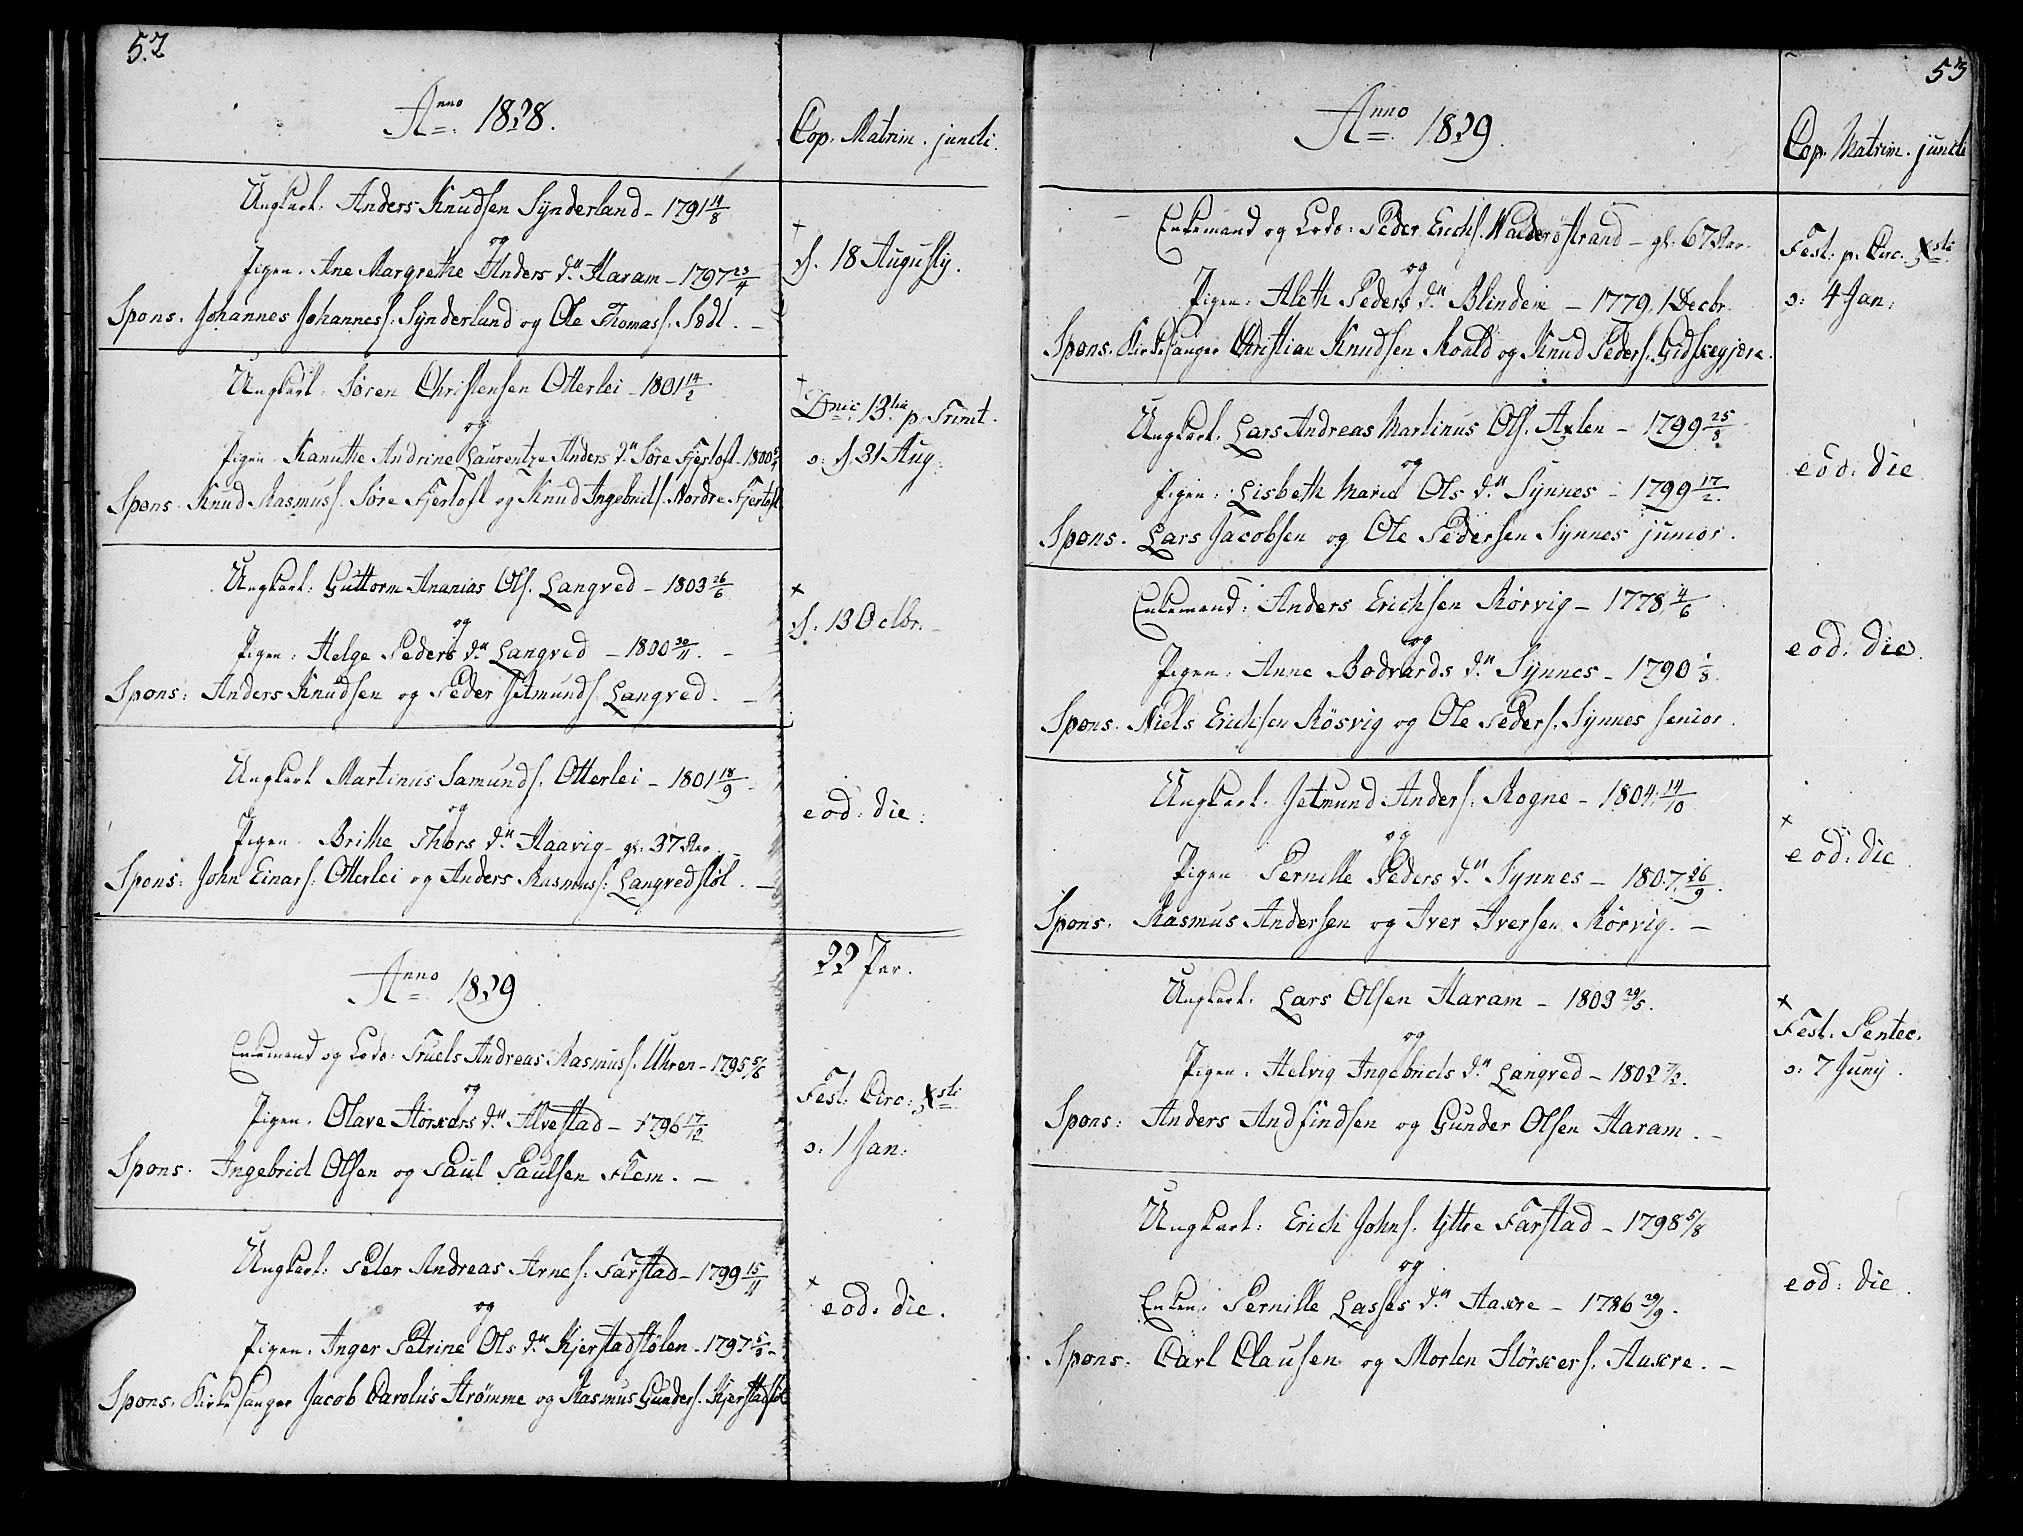 52
Anno 1828.
Cop. Matrim. juncti.
Ungkarl: Anders Knudsen Synderland - 1791 14/8
og
Pigen. Ane Margrethe Anders d. Haram - 1797 23/4
Spons. Johannes Johanness: Synderland og Ole Thomass.
+
d. 18 Augusty.
Ungkarl: Søren Christensen Otterlei - 1801 14/2
og
Pigen. Kanuthe Andrine Laurentze Anders d. Søre Fjertoft - 1800
Spons. Knud Rasmuss. Søre Fjertoft og Knud Ingebrids. Nordre Fjertoft
+
Dnic: 13tia p. Trinit.
ɔ: d. 31 Aug:
Ungkarl: Guttorm Ananias Ols. Langved - 1803 26/6
og
Pigen: Helge Peders d. Langved - 1800 30/11. -
Spons: Anders Knudsen og Peder Jetmunds. Langved. -
+
d. 13 Octbr. -
Ungkarl Martinus Samunds. Otterlei - 1801 18/9
og
Pigen. Brithe Thors d. Haavig - gl: 37 Aar. -
Spons: John Einars: Otterlei og Anders Rasmuss: Langvedstøl. -
eod: die:
22 Par.
Anno 1829
Enkemand og Lodo: Truels Andreas Rasmuss. Uhren - 1795 5/6
og
Pigen. Olave Storkers d. Alvestad - 1796 17/12
Spons. Ingebrict Olsen og Paul Paulsen Flem. -
Fest. Circ: Xsti
ɔ: 1 Jan:
Ungkarl: Peter Andreas Arnes: Farstad - 1799 15/11
og
Pigen. Inger Petrine Ols d. Kjerstadstølen - 1797
Spons. Kirkesanger Jacob Carolus Strømme og Rasmus Gunders. Kjerstadstøl
+
eod: die.
53
Anno 1829.
Cop. Matrim. juncti
Enkemand og Lodo: Peder Erichs. Walderøstrand - gl: 67 Aar.
og
Pigen: Aleth Peders d. Blindem - 1779, 1 Decbr.
Spons. Kirkesanger Christian Knudsen Roald og Knud Peders. Gidskegjere.
Fest: p. Circ. Xsti
ɔ: 4 Jan:
Ungkarl. Lars Andreas Martinus Ols. Axlen - 1799 25/8
og
Pigen: Lisbeth Maria Ols d. Synnes - 1799 17/2.
Spons. Lars Jacobsen og Ole Pedersen Synnes junior.
eod: die
Enkemand: Anders Erichsen Rørvig - 1778 4/6
og
Pigen: Anne Bodvards d. Synnes - 1790 1/8.
Spons. Niels Erichsen Røsvig og Ole Peders. Synnes senior.
eod: die.
Ungkarl. Jetmund Anders: Rogne - 1804. 14/10
og
Pigen Pernille Peders d. Synnes - 1807. 26/9.
Spons. Rasmus Andersen og Iver Iversen Rørvig. -
+
eod: die.
Ungkarl. Lars Olsen Haram - 1803 29/5.
og
Pigen. Helvig Ingebricts d. Langved - 1802 7/2.
Spons: Anders Andfindsen og Gunder Olsen Haram. -
+
Fest. Pentec.
ɔ: 7 Juny.
Ungkarl: Erich Johns. Yttre Farstad - 1798 5/8
og
Enken: Pernille Lasses d. Aakre - 1786 29/9.
Spons. Carl Clausen og Morten Storkers. Aakre. -
eod: die.